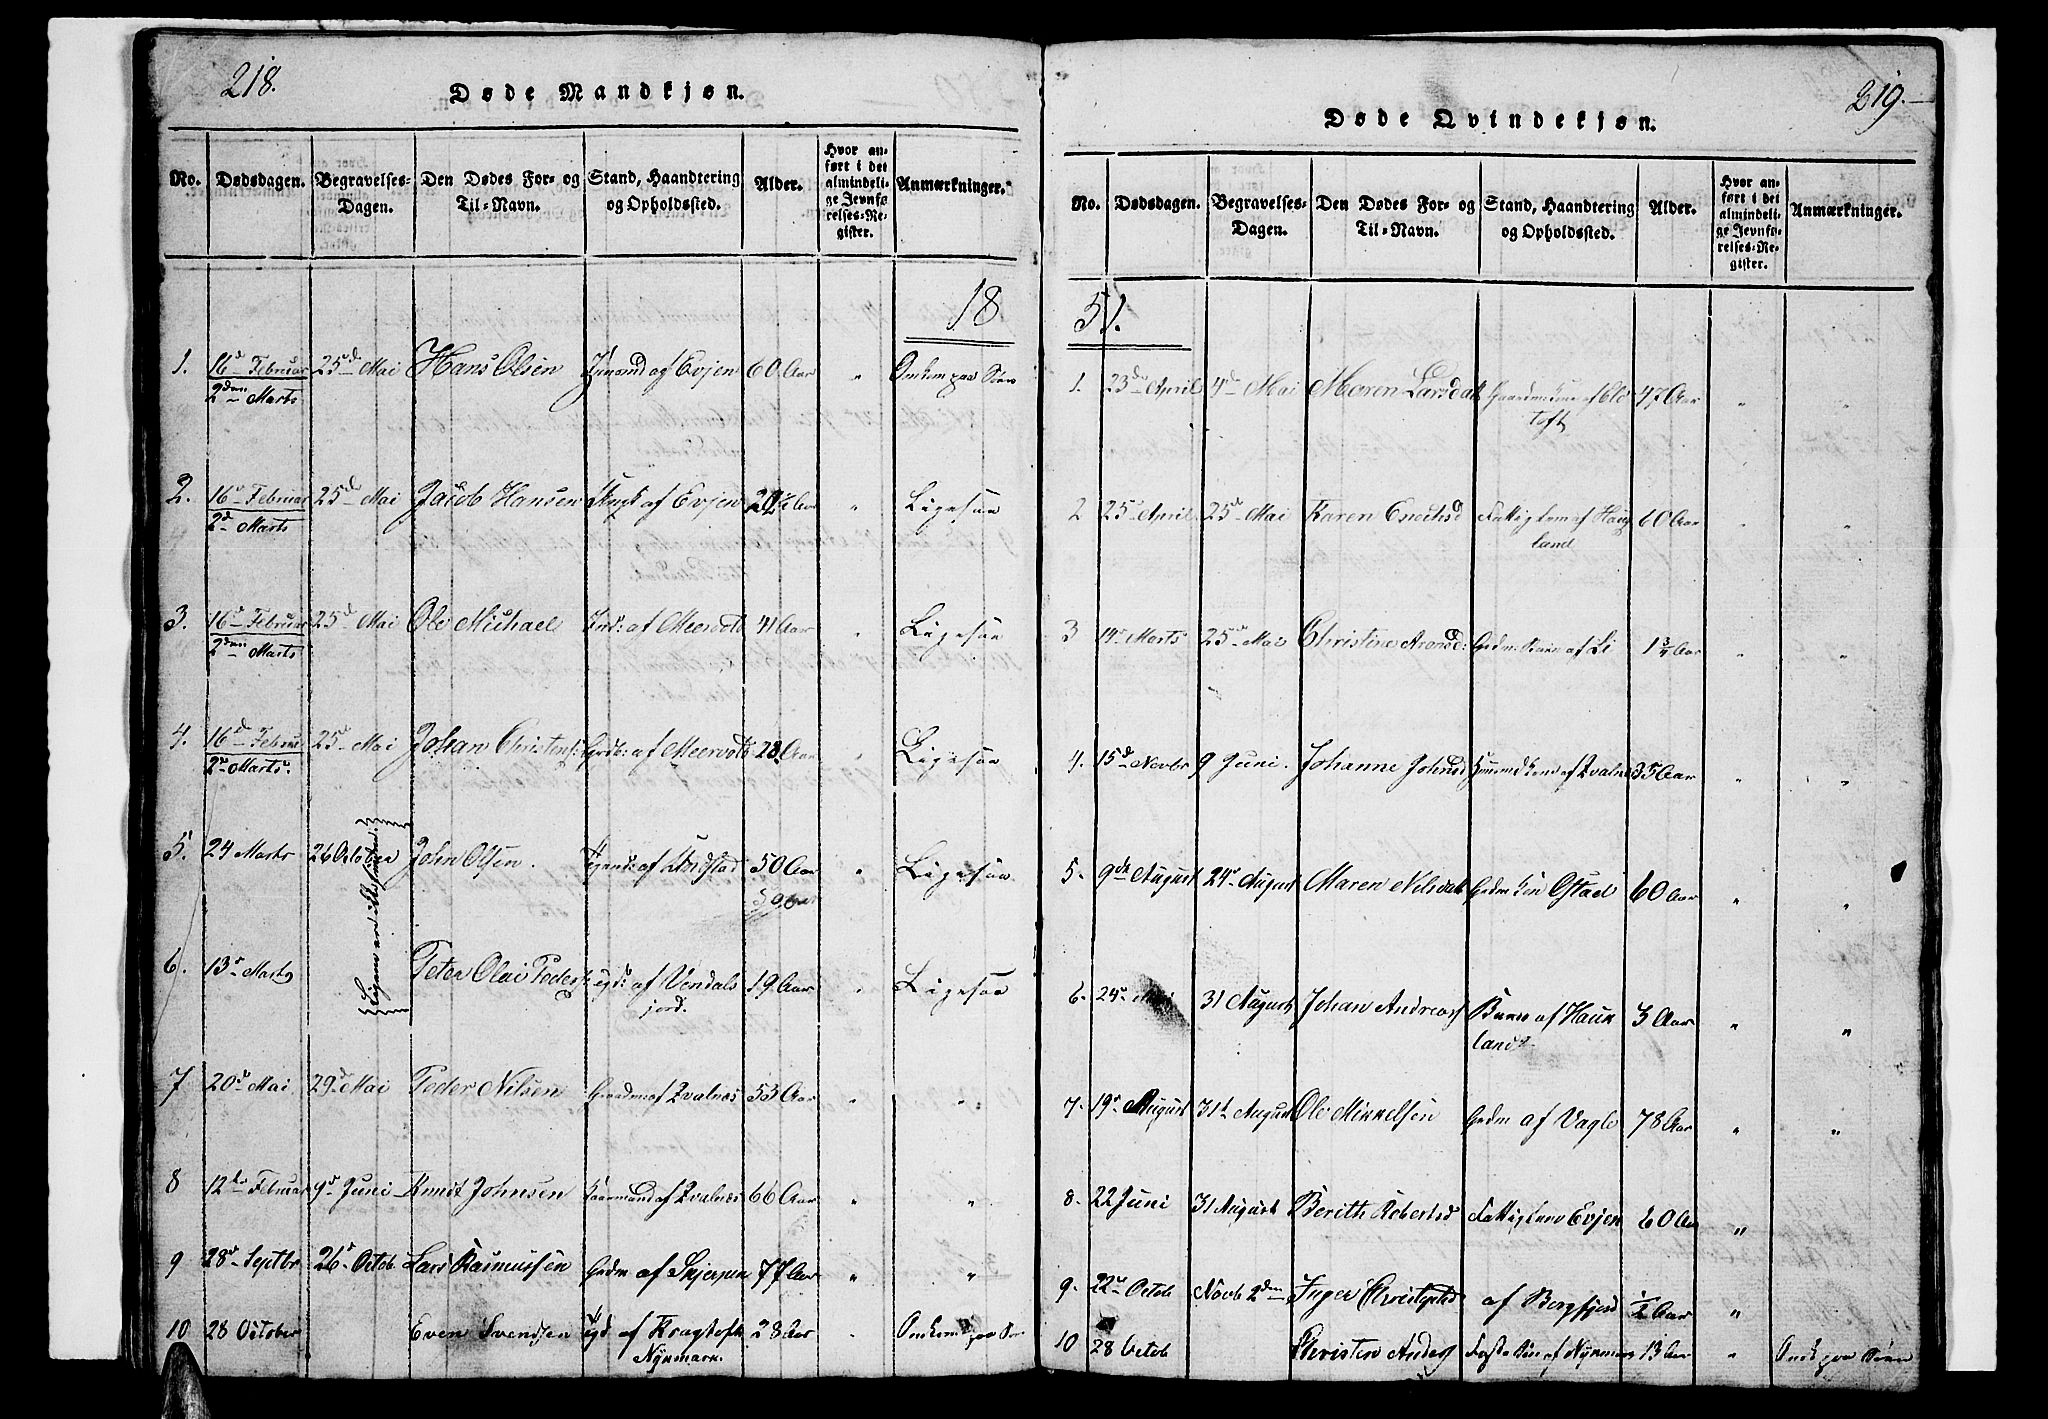 218.
Døde Mandkjøn.
No. Dødsdagen. Begravelses-Dagen. Den Dødes For- og Til-Navn. Stand, Haandtering og Opholdssted. Alder. Hvor anført i det almindelige Jevnførelses-Register. Anmærkninger.
18
1. 16d Februar 2den Marts 25de Mai Hans Olsen af Evjen 60 Aar " Omkom paa Søen
2. 16d Februar 2d Marts 25d Mai Jacob Hansen af Evjen 20½ Aar " Ligesaa
3. 16d Februar 2den Marts 25d Mai Ole Michael Ind: af Meervold 41 Aar " Ligesaa
4. 16d Februar 2d Marts 25d Mai Johan Christens: Grdb: af Meervold 28 Aar " Ligesaa
5. 24 Marts 26 October John Olsen. 50 Aar " Ligesaa
6. 13d Marts Peter Olai Peders af Vendals jord. 19 Aar " Ligesaa
7 20d Mai 29d Mai Peder Nilsen Gaardm af Kvalnes 53 Aar " "
8 12de Februar 9d Juni Knudt Johnsen Kaarmand af Kvalnæs 66 Aar " "
9 28d Septbr 26d Octob Lars Rasmussen Grdm af Skjerpen 77 Aar " "
10 28 October Even Svendsen af Kragtoft Nymark. 28 Aar " Omkom paa Søe
219.
Døde Qvindekjøn.
No. Dødsdagen. Begravelses-Dagen. Den Dødes For- og Til-Navn. Stand, Haandtering og Opholdssted. Alder. Hvor anført i det almindelige Jevnførelses-Register. Anmærkninger.
51.
1. 23de April 4de Mai Maren Larsdat Gaardm: Kone af Ole toft 47 Aar " "
2 25d April 25d Mai Karen Enochsd Fattiglem af Haug land 60 Aar " "
3 14d Marts 25d Mai Christine Aronsd: Grdm: Barn af Li 1¾ Aar " "
4. 15d Novbr 9 Juni. Johanne Johnsd Huusmd Kone af Kvalne 35 Aar " "
5. 9de August 24d August Maren Nilsdatt Grdm Kon Ostad 60 Aar " "
6. 24d Mai 31 August Johan Andreas Barn af Hauk land 3 Aar " "
7. 19d August 31t August Ole Mikkelsen Grdm af Vagle 78 Aar " "
8. 22 Juni 31 August Berith Robertsd Fattiglem Evjen 60 Aar "
9. 22d Octob Novb 2den Inger Christophd af Bergfjord ½ Aar "
10 28 Octob Christen Anders Foste Søn af Nymark 13 Aar " Omk paa Søen